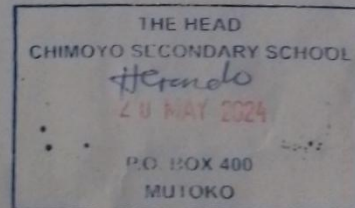 THE HEAD
CHIMOYO SECONDARY SCHOOL
20 MAY 2024
P.O. BOX 400
MUTOKO